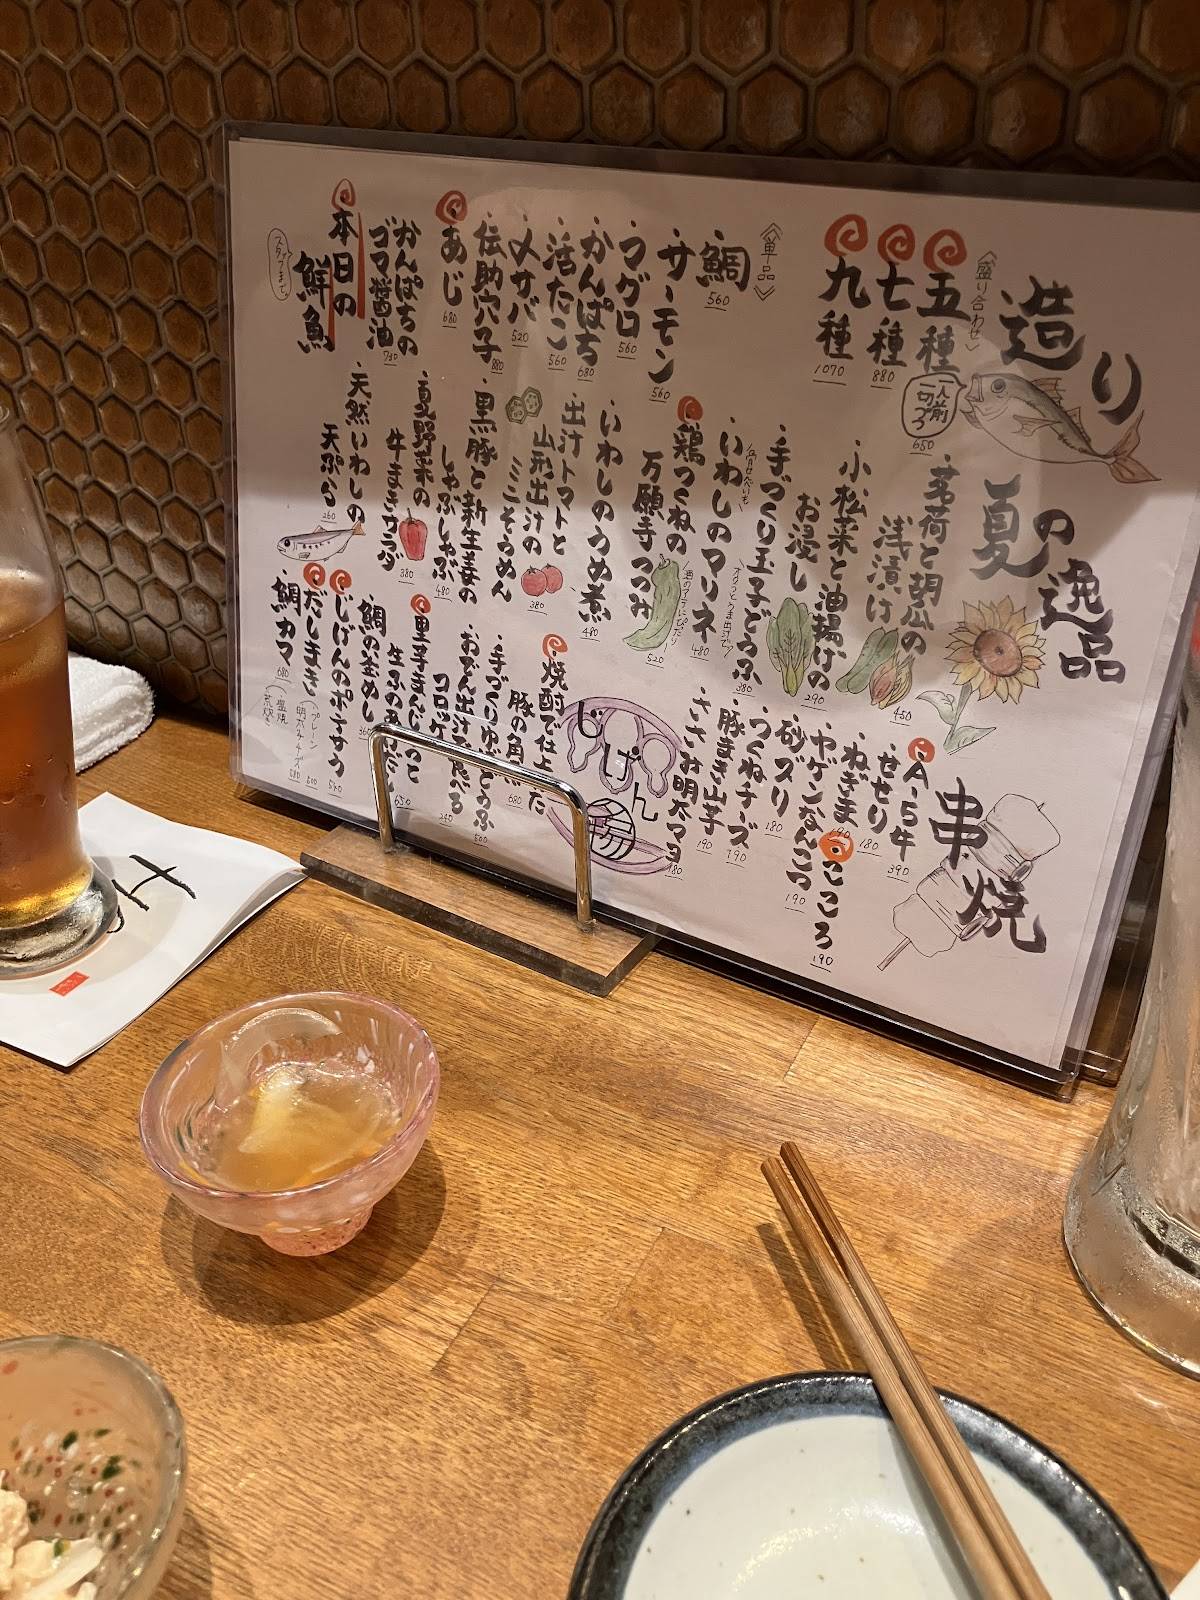 造り
《盛り合わせ》
五種
一人前
一切づつ
650
七種 880
九種 1070
《単品》
・鯛 560
・サーモン 560
・ツグロ 560
・かんぱち 680
・活たこ 560
・〆サバ 520
・伝助穴子 880
あじ 680
かんぱちの
ゴマ醤油 780
本日の
鮮魚
スタッフまで。
夏の逸品
・茗荷と胡瓜の
浅漬け 450
・小松菜と油揚げの
お浸し 290
・手づくり玉子どうふ 380
・いわしのマリネ 480
鶏つくねの
万願寺つつみ 520
・いわしのうめ煮 480
・出汁トマトと
山形出汁の
ミニそうめん 380
・黒豚と新生姜の
しゃぶしゃぶ 480
・夏野菜の
牛まきサラダ 380
・天然いわしの
天ぷら 260
串焼
・A-5牛 390
・せせり 180
・ねぎま 190
・ヤゲンなんこつ 190
こころ 190
・砂ズリ 180
・つくねチーズ 190
・豚まき山芋 190
・ささみ明太マヨ 180
じげん
焼酎で仕上げた
豚の角煮 680
・手づくりゆどうふ 500
・おでん出汁で食べる
コロッケ 240
里芋まんじゅうと
生ふのあげだし 650
・鯛の釜めし
じげんのポテサラ
だしまき
プレーン 500
明太チーズ 580
・鯛カマ 680
(塩焼
(荒焚き